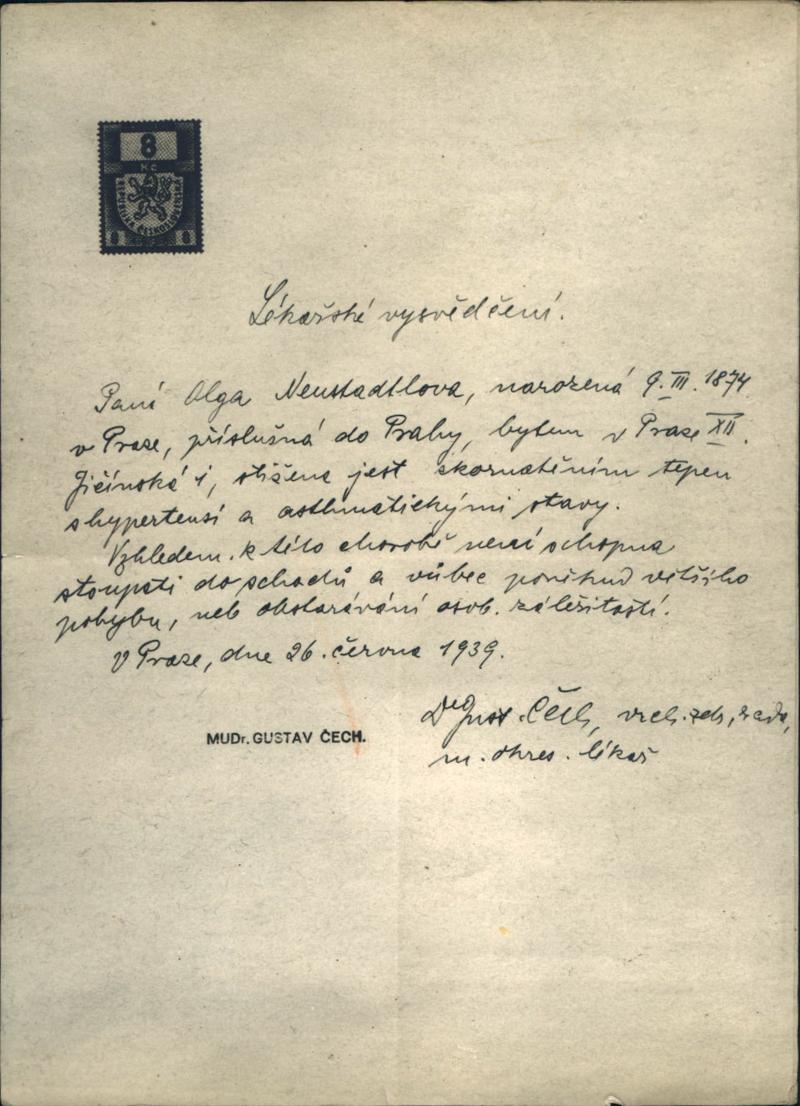 8
Kč
REPUBLIKA ČESKOSLOVENSKÁ
8 8
Lékařské vysvědčení.
Paní Olga Neustadtlova, narozená 9. III. 1874
v Praze, příslušná do Prahy, bytem v Praze XII.
Jičínská 1, stižena jest skornatěním tepen
s hypertensí a asthmatickými stavy.
Vzhledem k této chorobě není schopna
stoupati do schodů a vůbec poněkud většího
pohybu, neb obstarávání osob. záležitostí.
V Praze, dne 26. června 1939.
Dr Gust. Čech, vrch. zdr. rada,
MUDr. GUSTAV ČECH.
m. okres. lékař